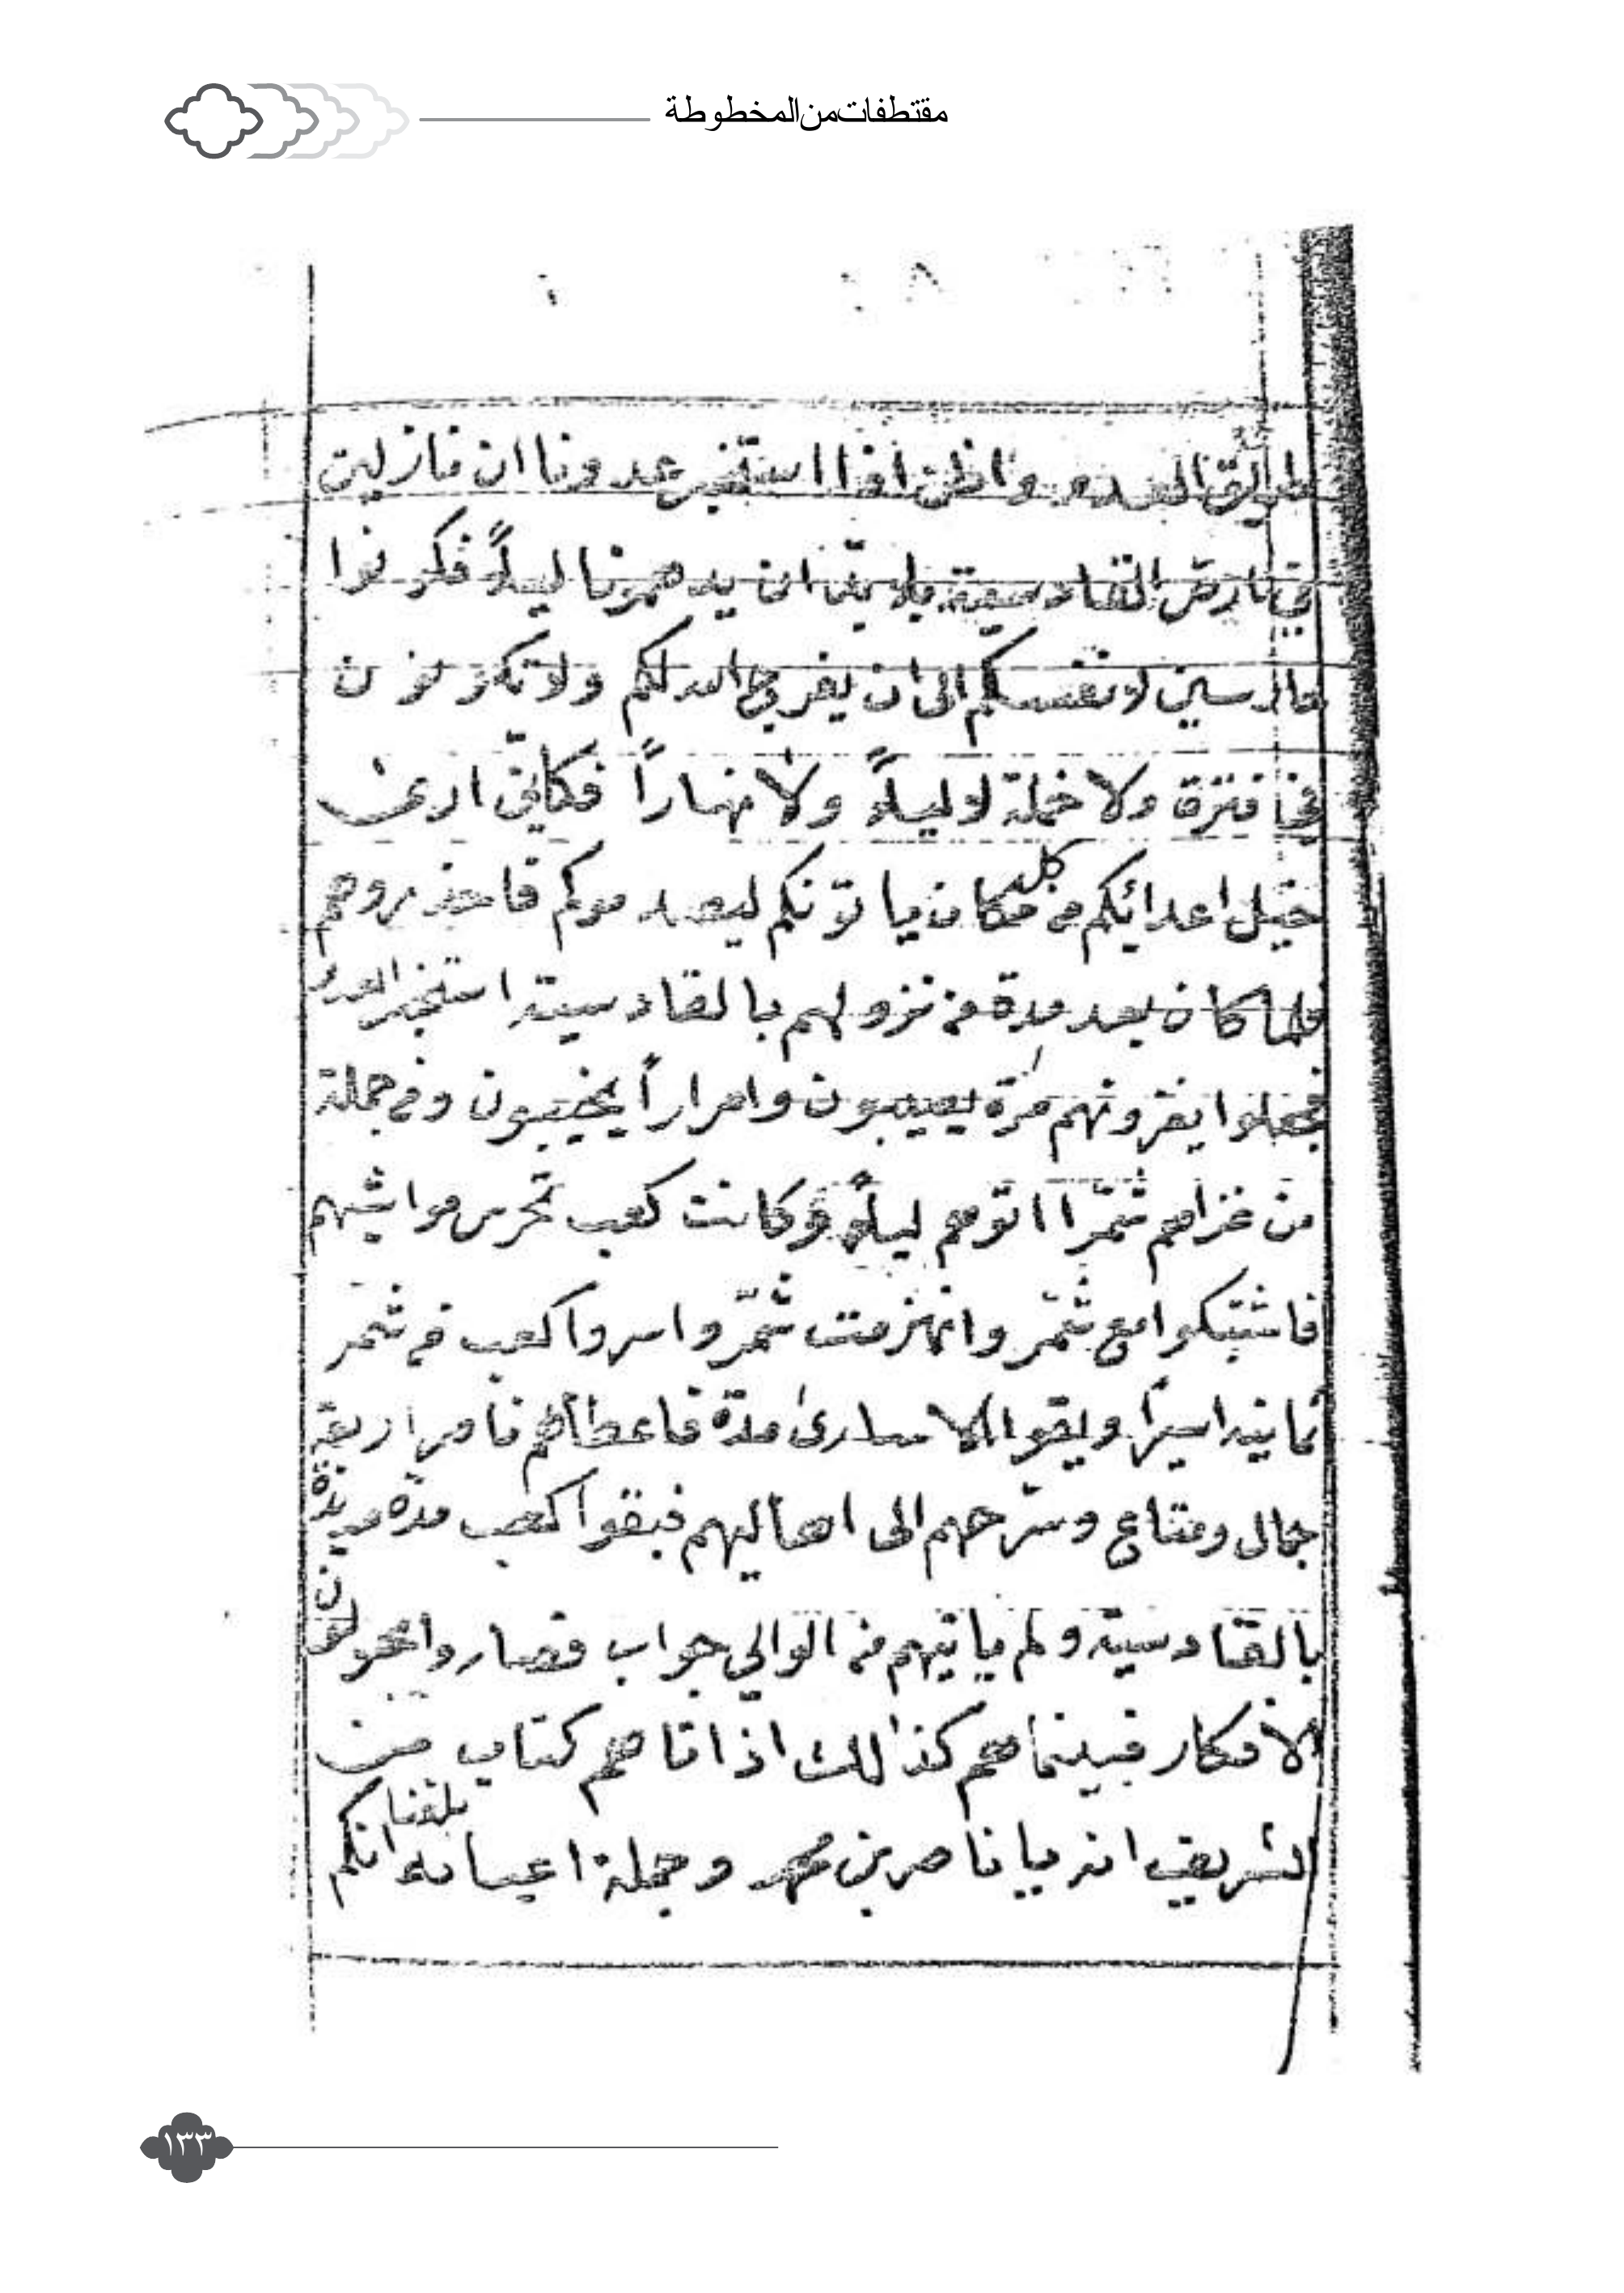 مقتطفات من المخطوطة
واظن اذا استخبر عدونا ان نازلين
في ارض القادسية بلا بد ان يدهمونا ليلاً فكونوا
لانفسكم الى ان يفرج الله لكم ولا تكونون
في فترة ولا خملة لا ليلاً ولا نهاراً فكاني ارى
خيل اعدائكم من كل مكان ياتونكم ليصدموكم فاحذروهم
فلما كان بعد مدة من نزولهم بالقادسية استخبر العدو
فجعلوا يغزونهم مرة يصيبون وامراراً يخيبون ومن جملة
من غزاهم شمّر اتوهم ليلاً وكانت كعب تحرس مواشيهم
فاشتبكوا مع شمّر وانهزمت شمّر واسروا كعب من شمّر
ثمانية اسيراً وبقوا الاسارى مدّة فاعطاهم ناصر اربعة
جمال ومتاع وسرّحهم الى اهاليهم فبقوا كعب مدة مديدة
بالقادسية ولم ياتيهم من الوالي جواب فصاروا يجولون
الافكار فبينما هم كذالك اذ اتاهم كتاب من
الشريف انه يا ناصر بن محمد وجملة اعيانه بلغنا انكم
١٣٣